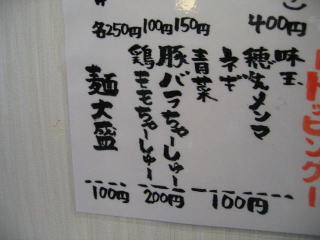 トッピング
味玉
穂先メンマ
ネギ
青菜
100円
豚バラちゃーしゅー
鶏ももちゃーしゅー
200円
麺大盛
100円
400円
150円
100円
各250円